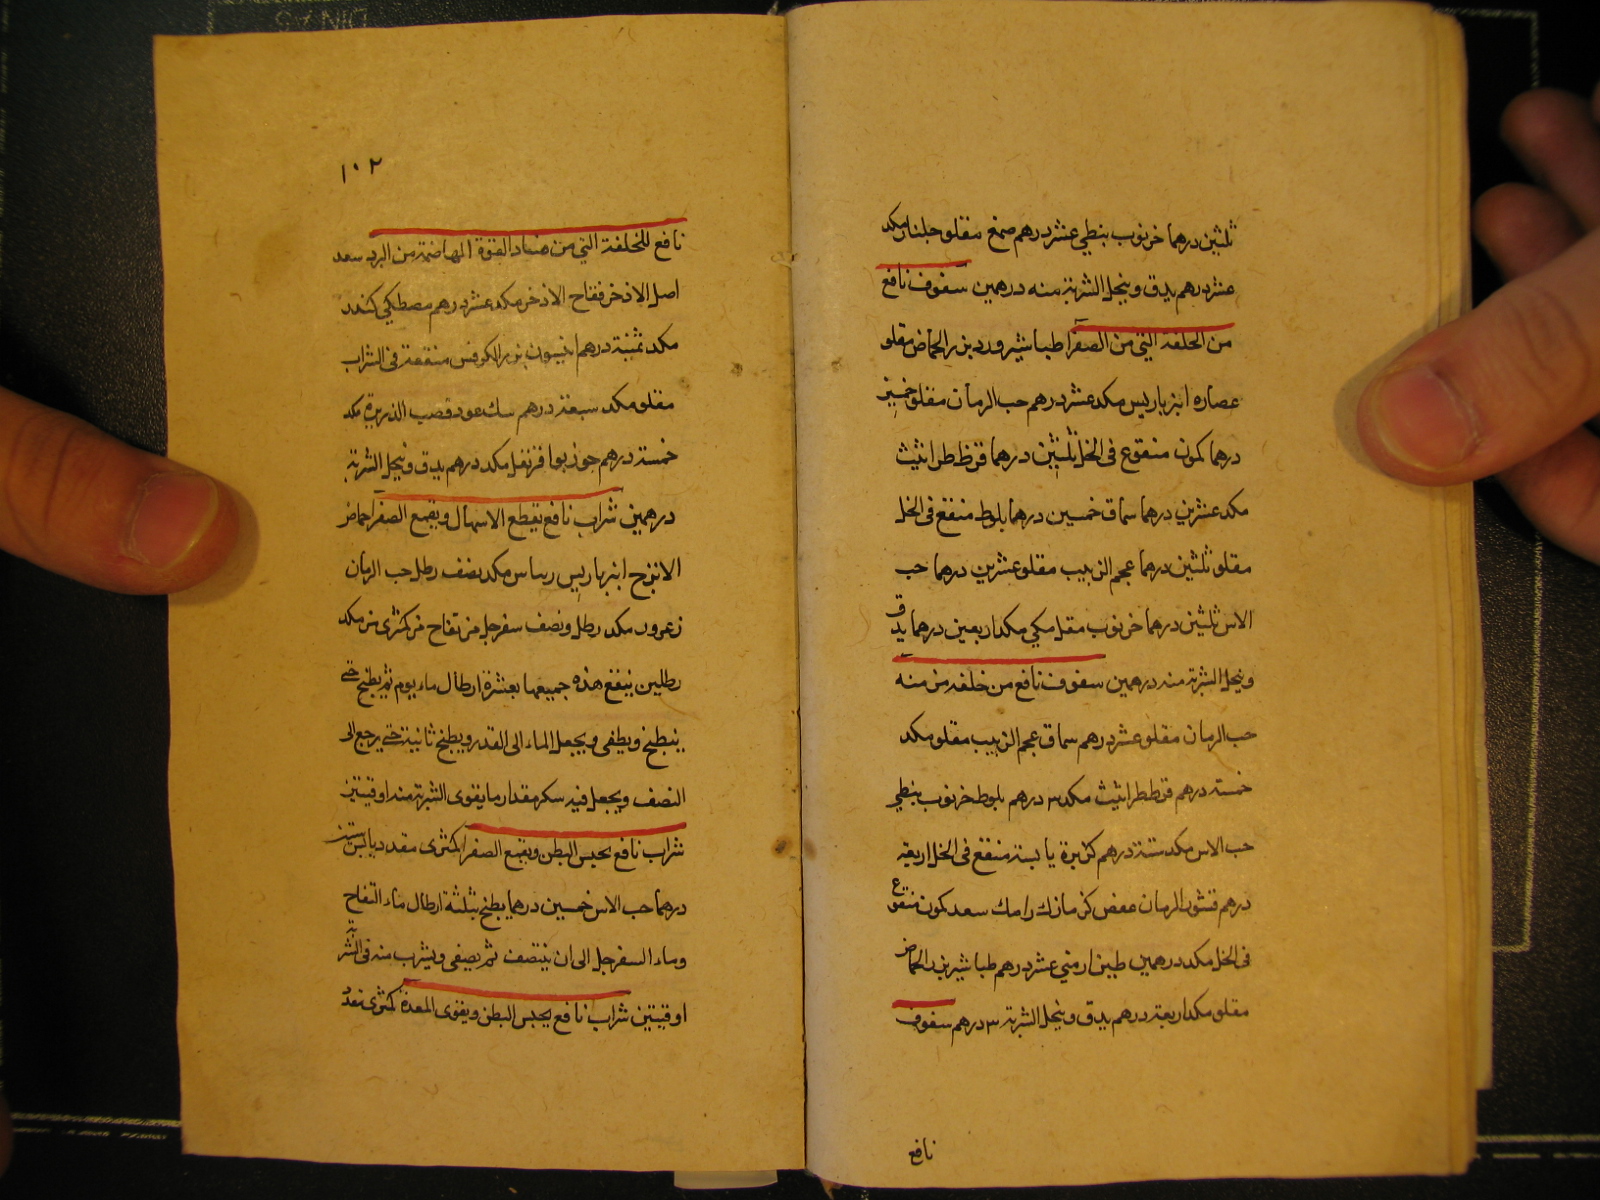 ثلثين درهما خرنوب بنطي عشر درهم صمغ مقلو جلنار مكد
عشر درهم يدق وينخل الشربة منه درهمين سفوف نافع
من الخلفة التي من الصفرا طباشير ورد بزر الحماض مقلو
عصاره انبرباريس مكد عشر درهم حب الرمان مقلو خمسين
درهما كمون منقوع في الخل ثلثين درهما قرظ طراثيث
مكد عشرين درهما سماق خمسين درهما بلوط منقع في الخل
مقلو ثلثين درهما عجم الزبيب مقلو عشرين درهما حب
الاس ثلثين درهما خرنوب مقل مكي مكد اربعين درهما يدق
وينخل الشربة منه درهمين سفوف نافع من خلفه مزمنه
حب الرمان مقلو عشر درهم سماق عجم الزبيب مقلو مكد
خمسة درهم قرظ طراثيث مكد ٣ درهم بلوط خرنوب بنطي
حب الاس مكد ستة درهم كزبرة يابسة منقع في الخل اربعة
درهم قشور الرمان عفص كزمازك رامك سعد كمون منقوع
في الخل مكد درهمين طين ارمني عشر درهم طباشير بزر الحماض
مقلو مكد اربعة درهم يدق وينخل الشربة ٣ درهم سفوف
نافع
١٠٢
نافع للخلفة التي من فساد القوة الهاضمة من البرد سعد
اصل الاذخر فقاح الاذخر مكد عشر درهم مصطكي كندر
مكد ثمنية درهم انيسون بزر الكرفس منقعة في الشراب
مقلو مكد سبعة درهم سك عود قصب الذريرة مكد
خمسة درهم جوزبوا قرنفل مكد درهم يدق وينخل الشربة
درهمين شراب نافع يقطع الاسهال ويقمع الصفرا حماض
الاترج انبرباريس ريباس مكد نصف رطل حب الرمان
زعرور مكد رطل ونصف سفرجل مز تفاح مز كمثرى مز مكد
رطلين ينقع هذه جميعها بعشرة ارطال ماء يوم ثم يطبخ حتى
ينطبخ ويصفى ويجعل الماء الى القدر ويطبخ ثانية حتى يرجع الى
النصف ويجعل فيه سكر مقدار ما يقوى الشربة منه اوقيتين
شراب نافع يحبس البطن ويقمع الصفرا كمثرى مقدد يابس ستين
درهما حب الاس خمسين درهما يطبخ بثلثة ارطال ماء التفاح
وماء السفرجل الى ان ينتصف ثم يصفى ويشرب منه في الشربة
اوقيتين شراب نافع يحبس البطن ويقوى المعدة كمثرى مقدد